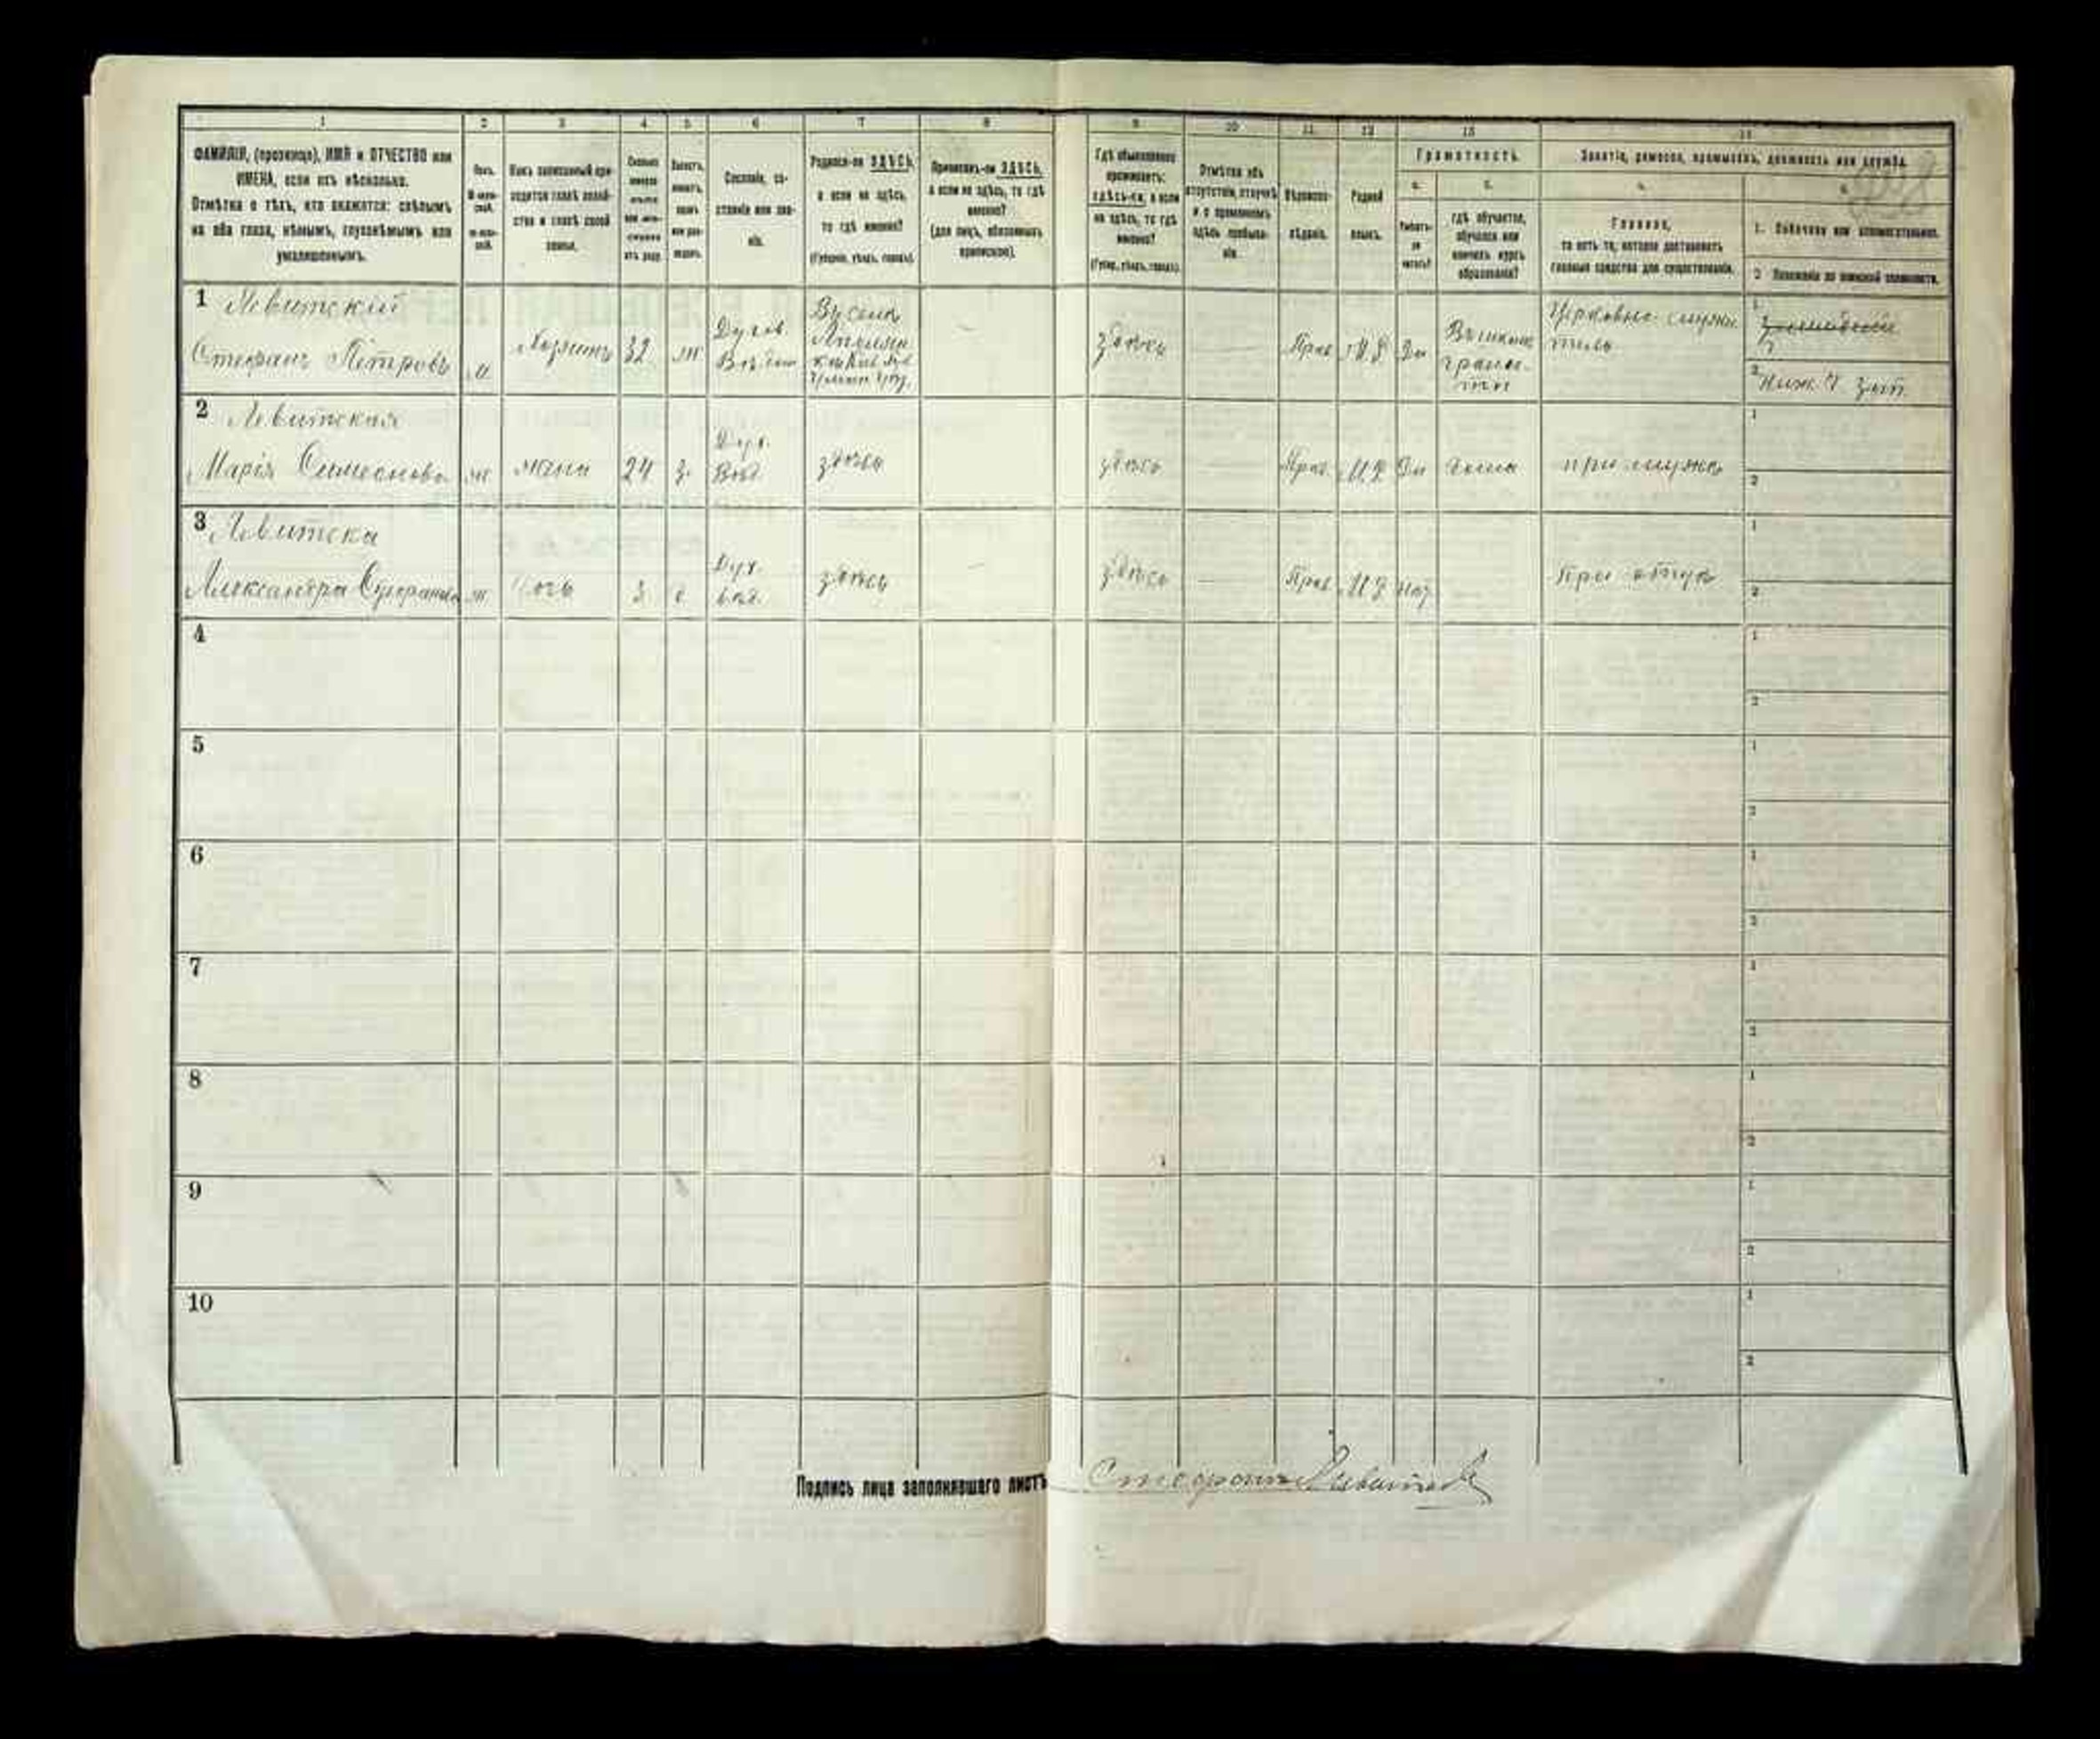 1 2 3 4 5 6 7 8 9 10 11 12 13 14
ФАМИЛІЯ, (прозвище), ИМЯ и ОТЧЕСТВО или
ИМЕНА, если ихъ нѣсколько.
Отмѣтка о тѣхъ, кто окажется: слѣпымъ
на оба глаза, нѣмымъ, глухонѣмымъ или
умалишеннымъ.
Полъ.
Какъ записанный при-
ходится главѣ хозяй-
ства и главѣ своей
семьи.
Сословіе, со-
стояніе или зва-
ніе.
Родился-ли ЗДѢСЬ,
а если не здѣсь,
то гдѣ именно?
(Губернія, уѣздъ, городъ).
Приписанъ-ли ЗДѢСЬ,
а если не здѣсь, то гдѣ
именно?
(для лицъ, обязанныхъ
припискою).
Гдѣ обыкновенно
проживаетъ:
здѣсь-ли, а если
не здѣсь, то гдѣ
именно?
(Губер., уѣздъ, городъ).
Отмѣтка объ
отсутствіи, отлучкѣ
и о временномъ
здѣсь пребыва-
ніи.
Вѣроиспо-
вѣданіе.
Родной
языкъ.
Грамотность.
а.
Умѣетъ-
ли
читать?
б.
гдѣ обучается,
обучался или
кончилъ курсъ
образованія?
Занятіе, ремесло, промыселъ, должность или служба.
а.
Главное,
то есть то, которое доставляетъ
главныя средства для существованія.
б.
1. Побочное или вспомогательное.
2 Положеніе по воинской повинности.
1 Левитский
Стефанъ Петровъ м Хозяинъ 32 ж
здѣсь Прав М.Р Да
2 Левитская
Марія Симеонова ж жена 24 з. Дух. Вѣд. здѣсь здѣсь Прав. М.Р Да дома при мужѣ
3 Левитска
Александра Стефанова ж дочь 3 д Дух. вѣд. здѣсь здѣсь Прав М Р нѣт При отцѣ
4
5
6
7
8
9
10
Подпись лица заполнявшаго листъ Стефанъ Левитскій